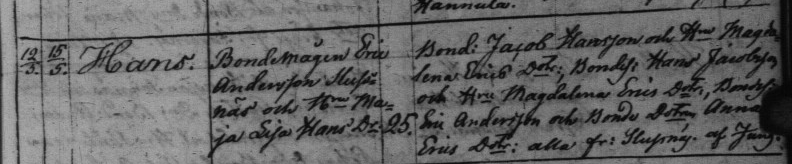 Hannula.
12/5. 15/5. Hans. Bondemågen Eric
Andersson Slusu-
näs och Hru Ma-
ja Lisa Hans Dr. 25.
Bond: Jacob Hansson och Hru Magda-
lena Erics Dotr; Bondes: Hans Jacobsson
och Hru Magdalena Erics Dotr, Bondes:
Eric Andersson och Bonde Dotren Anna
Erics Dotr: alla fr: af